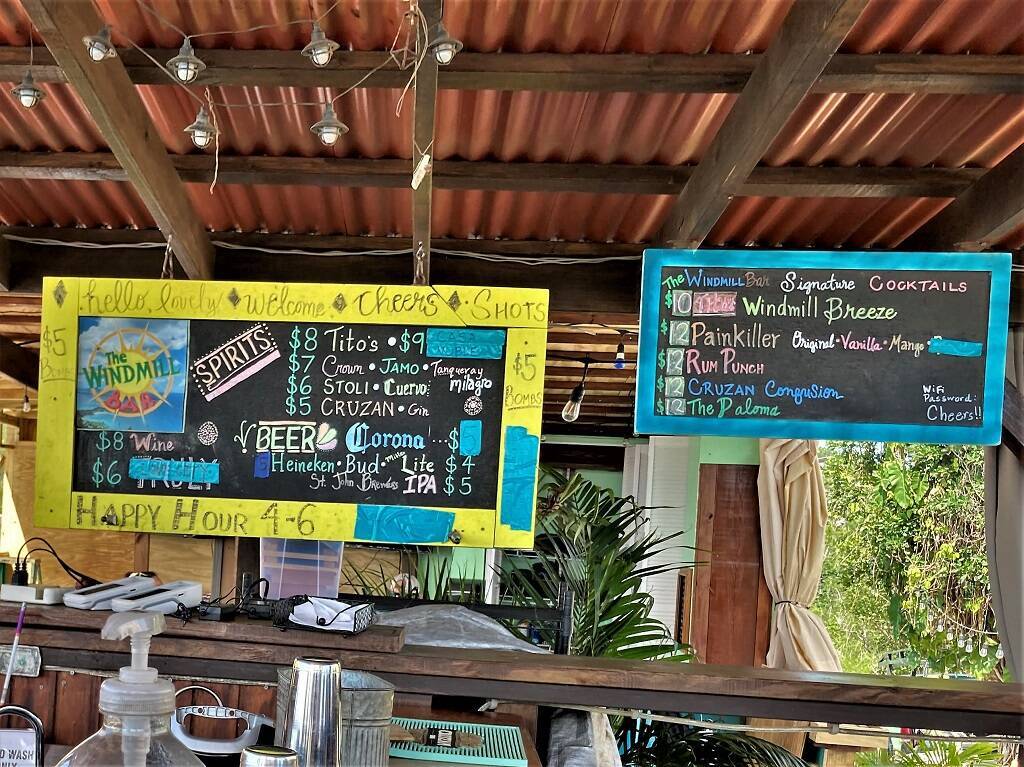 hello, lovely ◆ welcome ◆ cheers ◆ SHOTS
$5
The
WINDMILL
BAR
SPIRITS
$8 Tito's • $9
$7 Crown • JAMO • Tanqueray
$6 STOLI • Cuervo milagro
$5 CRUZAN • Gin
$5
BOMBS
$8 Wine
$6 TRULY
BEER Corona ... $
Heineken • Bud • Miller Lite $4
St. John Brewers IPA $5
HAPPY HOUR 4-6
The WINDMILL Bar Signature COCKTAILS
Windmill Breeze
$12 Painkiller Original • Vanilla • Mango •
$12 RUM PUNCH
$12 CRUZAN Confusion
$12 The Paloma
WiFi
Password:
Cheers!!
WASH
ONLY